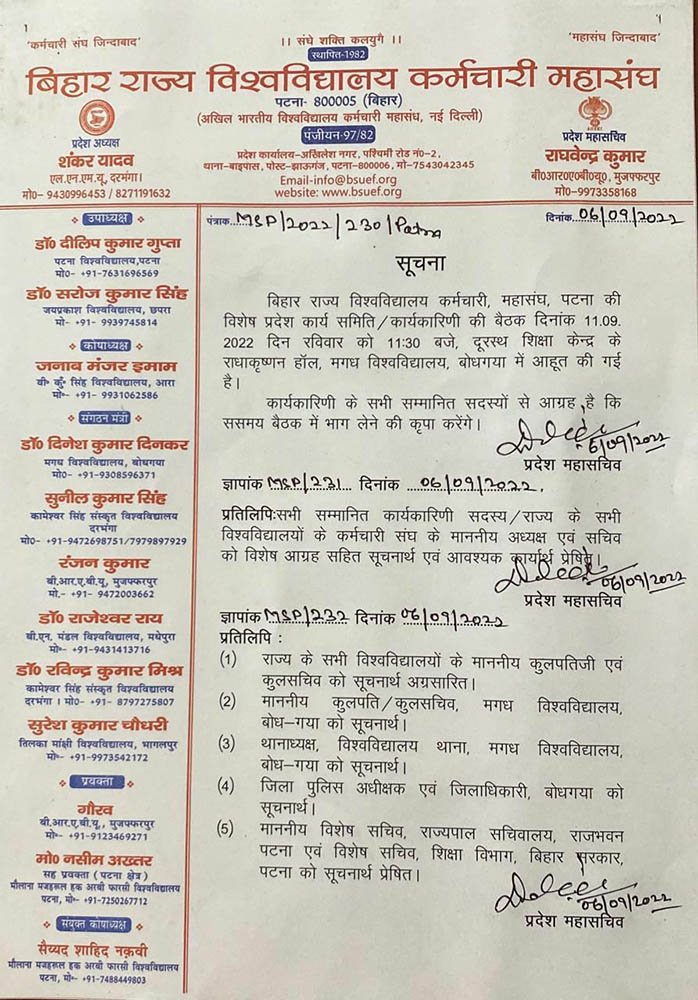 'कर्मचारी संघ जिन्दाबाद'
।। संघे शक्ति कलयुगै ।।
'महासंघ जिन्दाबाद'
स्थापित-1982
बिहार राज्य विश्वविद्यालय कर्मचारी महासंघ
पटना- 800005 (बिहार)
(अखिल भारतीय विश्वविद्यालय कर्मचारी महासंघ, नई दिल्ली)
पंजीयन-97/82
प्रदेश अध्यक्ष
शंकर यादव
एल.एन.एम.यू. दरभंगा।
मो०- 9430996453 / 8271191632
प्रदेश कार्यालय-अखिलेश नगर, पश्चिमी रोड नं०-2,
थाना-बाइपास, पोस्ट-झाऊगंज, पटना-800006, मो०-7543042345
Email-info@bsuef.org
website: www.bsuef.org
प्रदेश महासचिव
राघवेन्द्र कुमार
बी०आर०ए०बी०यू०, मुजफ्फरपुर
मो०-9973358168
उपाध्यक्ष
डॉ० दीलिप कुमार गुप्ता
पटना विश्वविद्यालय,पटना
मो०- +91-7631696569
डॉ० सरोज कुमार सिंह
जयप्रकाश विश्वविद्यालय, छपरा
मो०- +91- 9939745814
कोषाध्यक्ष
जनाब मंजर इमाम
वी० कुं० सिंह विश्वविद्यालय, आरा
मो०- +91- 9931062586
संगठन मंत्री
डॉ० दिनेश कुमार दिनकर
मगध विश्वविद्यालय, बोधगया
मो०- +91-9308596371
सुनील कुमार सिंह
कामेश्वर सिंह संस्कृत विश्वविद्यालय
दरभंगा
मो०- +91-9472698751/7979897929
रंजन कुमार
बी.आर.ए.बी.यू, मुजफ्फरपुर
मो.- +91- 9472003662
डॉ० राजेश्वर राय
बी.एन. मंडल विश्वविद्यालय, मधेपुरा
मो०- +91-9431413716
डॉ० रविन्द्र कुमार मिश्र
कामेश्वर सिंह संस्कृत विश्वविद्यालय
दरभंगा । मो०- +91- 8797275807
सुरेश कुमार चौधरी
तिलका मांझी विश्वविद्यालय, भागलपुर
मो०- +91-9973542172
प्रवक्ता
गौरव
बी.आर.ए.बी.यू., मुजफ्फरपुर
मो०- +91-9123469271
मो० नसीम अख्तर
सह प्रवक्ता (पटना क्षेत्र)
मौलाना मजहरूल हक अरबी फारसी विश्वविद्यालय
पटना, मो०- +91-7250267712
संयुक्त कोषाध्यक्ष
सैय्यद शाहिद नक़वी
मौलाना मजहरूल हक अरबी फारसी विश्वविद्यालय
पटना, मो०- +91-7488449803
पत्रांक...MSP/2022/230/Patna
दिनांक..06/09/2022
सूचना
बिहार राज्य विश्वविद्यालय कर्मचारी, महासंघ, पटना की
विशेष प्रदेश कार्य समिति/कार्यकारिणी की बैठक दिनांक 11.09.
2022 दिन रविवार को 11:30 बजे, दूरस्थ शिक्षा केन्द्र के
राधाकृष्णन हॉल, मगध विश्वविद्यालय, बोधगया में आहूत की गई
है।
कार्यकारिणी के सभी सम्मानित सदस्यों से आग्रह है कि
ससमय बैठक में भाग लेने की कृपा करेंगे।
6/09/2022
प्रदेश महासचिव
ज्ञापांक MSP/231.... दिनांक ..06/09/2022.
प्रतिलिपिःसभी सम्मानित कार्यकारिणी सदस्य/राज्य के सभी
विश्वविद्यालयों के कर्मचारी संघ के माननीय अध्यक्ष एवं सचिव
को विशेष आग्रह सहित सूचनार्थ एवं आवश्यक कार्यार्थ प्रेषित।
06/09/2022
प्रदेश महासचिव
ज्ञापांक MSP/232 दिनांक 06/09/2022
प्रतिलिपि :
(1) राज्य के सभी विश्वविद्यालयों के माननीय कुलपतिजी एवं
कुलसचिव को सूचनार्थ अग्रसारित।
(2) माननीय कुलपति/कुलसचिव, मगध विश्वविद्यालय,
बोध–गया को सूचनार्थ।
(3) थानाध्यक्ष, विश्वविद्यालय थाना, मगध विश्वविद्यालय,
बोध–गया को सूचनार्थ।
(4) जिला पुलिस अधीक्षक एवं जिलाधिकारी, बोधगया को
सूचनार्थ।
(5) माननीय विशेष सचिव, राज्यपाल सचिवालय, राजभवन
पटना एवं विशेष सचिव, शिक्षा विभाग, बिहार सरकार,
पटना को सूचनार्थ प्रेषित।
06/09/2022
प्रदेश महासचिव